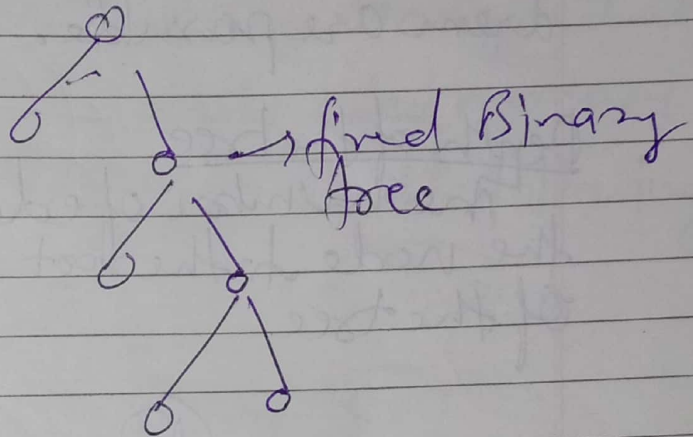 → fixed Binary
tree